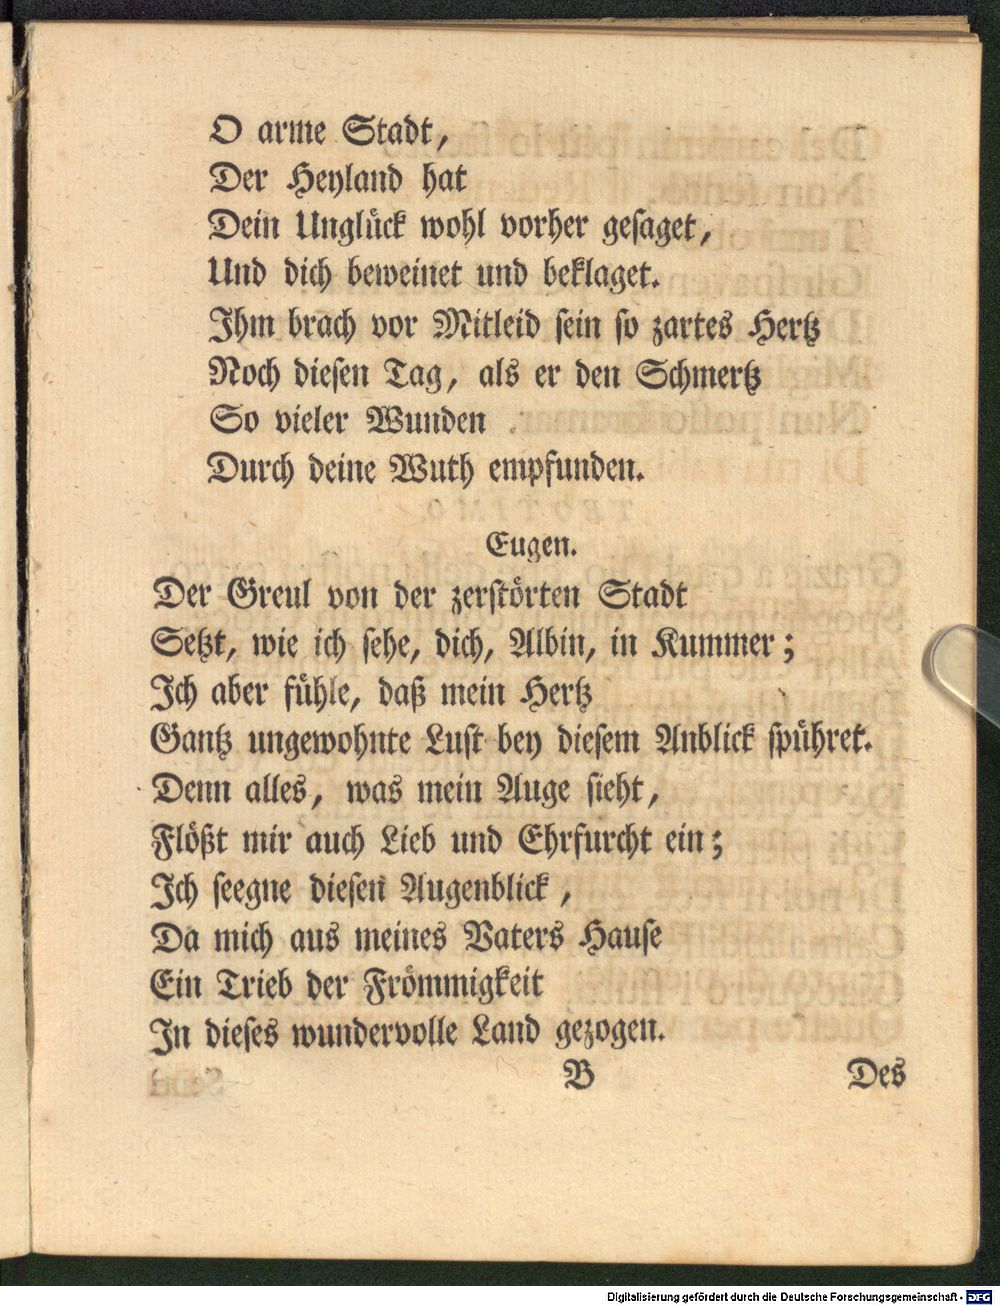 O arme Stadt,
Der Heyland hat
Dein Unglück wohl vorher gesaget,
Und dich beweinet und beklaget.
Ihm brach vor Mitleid sein so zartes Hertz
Noch diesen Tag, als er den Schmertz
So vieler Wunden
Durch deine Wuth empfunden.
Eugen.
Der Greul von der zerstörten Stadt
Setzt, wie ich sehe, dich, Albin, in Kummer;
Ich aber fühle, daß mein Hertz
Gantz ungewohnte Lust bey diesem Anblick spühret.
Denn alles, was mein Auge sieht,
Flößt mir auch Lieb und Ehrfurcht ein;
Ich seegne diesen Augenblick,
Da mich aus meines Vaters Hause
Ein Trieb der Frömmigkeit
In dieses wundervolle Land gezogen.
B Des
Digitalisierung gefördert durch die Deutsche Forschungsgemeinschaft - DFG